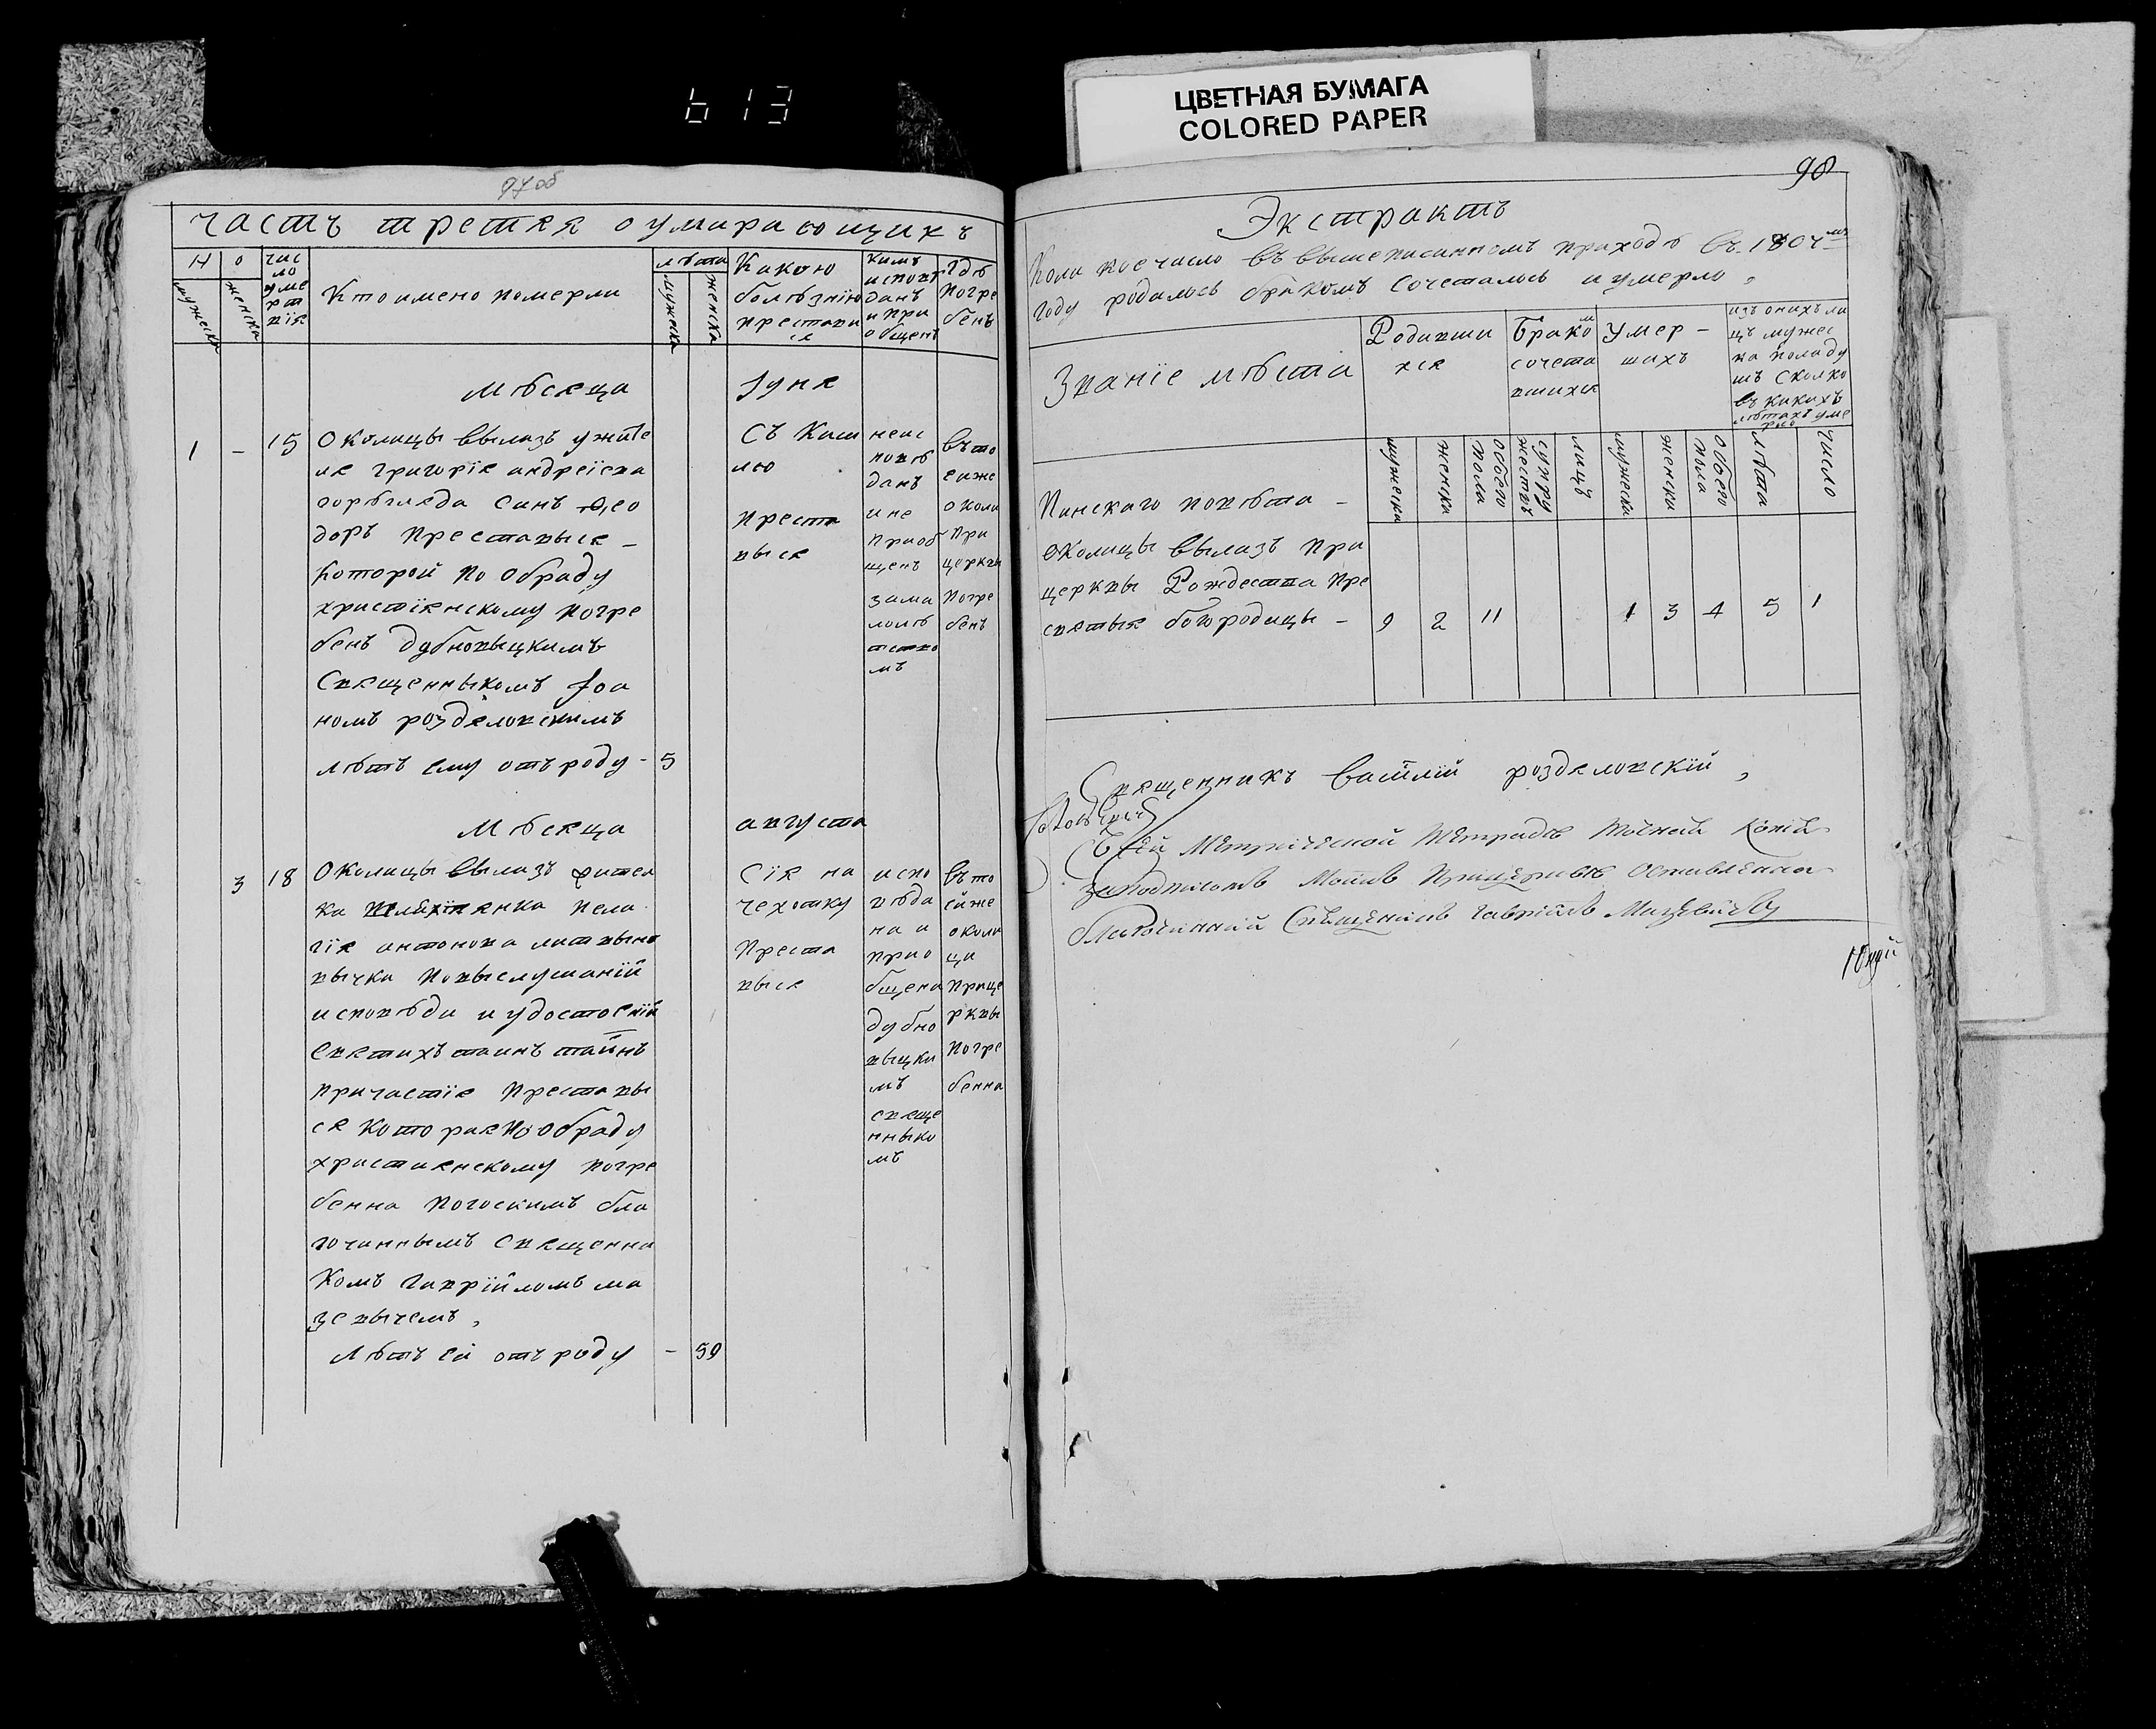 613
ЦВЕТНАЯ БУМАГА
COLORED PAPER
97об
Часть третяя о умирающихъ
Н о
мужеска
женска
чис
ло
уме
рт
вія
Кто имено померли
лѣта
мужеска
женска
Какою
болѣзнію
престави
ся
кимъ
исповѣ
данъ
и при
общенъ
Гдѣ
погре
бенъ
Мѣсяца Іуня
1 - 15
Околицы Вылазъ ужите
ля Григорія Андреієва
горѣгляда Синъ Ѳео
доръ преставыся -
который по обряду
христіянскому погре
бенъ Дубновыцкимъ
Священныкомъ Іоа
номъ розделовскимъ
лѣтъ ему отъ роду - 5
Съ Каш
лю
преста
выся
неис
повѣ
данъ
и не
приоб
щенъ
за ма
лолѣ
тство
мъ
въ то
еиже
околи
при
церквы
погре
бенъ
Мѣсяца августа
3 18
Околицы Вылазъ
Пела
гія антонова литвыно
вычка повыслушаній
исповѣди и удостоеній
Святихъ таинъ тайнъ
причастія преставы
ся которая по обряду
християнскому погре
бенна погоскимъ бла
гочиннымъ Священни
комъ Гавріиломъ ма
зевычемъ,
Лѣтъ ей отъ роду - 59
Сія на
чехотку
преста
выся
испо
вѣда
на и
прио
бщена
дубно
выцки
мъ
свяще
нныко
мъ
въ то
ейже
околи
ци
прице
рквы
погре
бенна
98
Экстрактъ
Коли кое число въ вышеписанномъ приходѣ въ 1804мъ
году родилось бракомъ сочеталось и умерло,
Званіе мѣста
Родивши
хся
Бракомъ
сочета
вшихся
Умер -
шихъ
изъ онихъ ли
цъ мужес
ка поладу
шъ сколко
въ какихъ
лѣтахъ уме
рло
мужеска
женска
обоего
пола
супру
жествъ
лицъ
мужеска
женски
обоего
пола
лѣта
число
Пинскаго повѣта -
околицы Вылазъ при
церквы Рождества пре
святыя богородицы - 9 2 11 1 3 4 5 1
Священникъ Василій розделовскій,
Сей Метрической Тетради точная копія
заподписомъ моимъ Прицерквѣ оставленна
Благочинній Священникъ Гавріилъ Мазевичъ